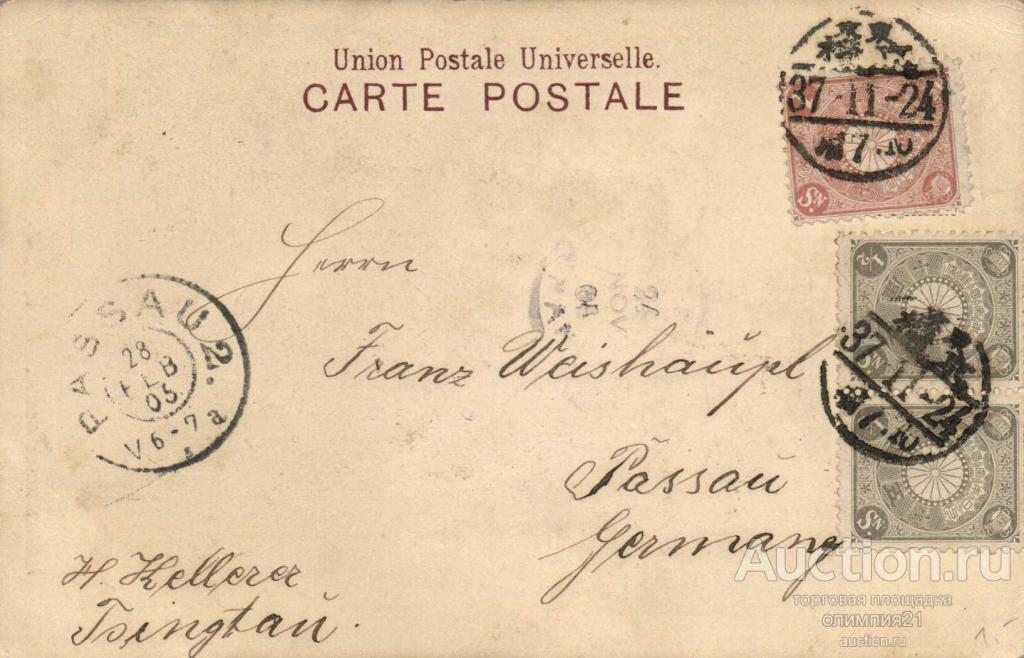 Union Postale Universelle.
CARTE POSTALE
37-11-24
Herrn
Franz Weishäupl
Passau
Germany
PASSAU 2.
28
FEB
05
V 6-7 a
26
NOV
37-11-24
H. Kellerer
Tsingtau.
½
Sɴ.
Sɴ.
Auction.ru
торговая площадка
олимпия21
auction.ru
1.-